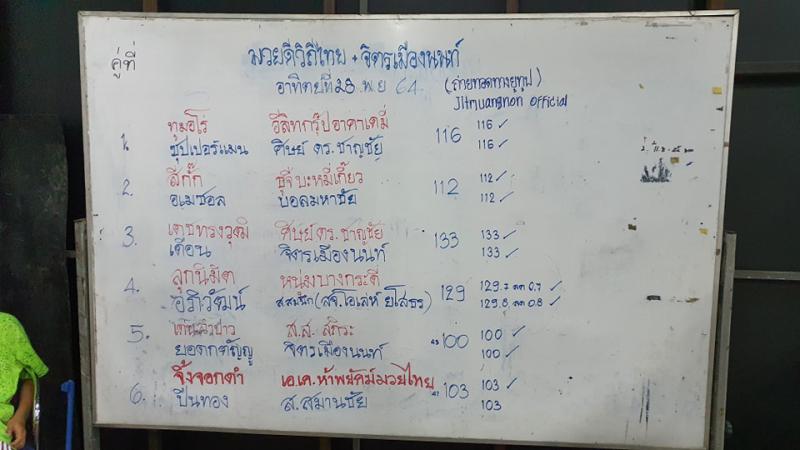 มวยดีวิถีไทย + จิตรเมืองนนท์
คู่ที่
อาทิตย์ที่ 28 พ.ย 64
(ถ่ายทอดทางยูทูป)
Jitmuangnon Official
ทูมอโร่ อีลิทกรุ๊ปอาคาเดมี่
1. 116 116 ✓
ซุปเปอร์แมน ศิษย์ ดร. ชาญชัย 116 ✓
สิกั๊ก ชูจีบะหมี่เกี๊ยว
2. 112 112 ✓
อเมซอล บอลมหาชัย 112 ✓
เดชทรงวุฒิ ศิษย์ ดร. ชาญชัย
3. 133 133 ✓
เดือน จิตรเมืองนนท์ 133 ✓
ลูกนิมิต หนุ่มบางกระดี่
4. 129 129.7 ลด 0.7 ✓
อภิวัฒน์ (สจ.โอเล่ห์ ยโสธร) 129.8 ลด 0.8 ✓
ส.ส.
5. 100 100 ✓
ยอดกตัญญู จิตรเมืองนนท์ 100 ✓
จิ้งจอกดำ เอ.เค.ห้าพยัคฆ์มวยไทย
6. 103 103 ✓
ปืนทอง ส.สมานชัย 103